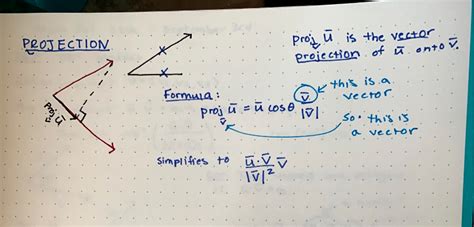 PROJECTION
proj_v̄ ū is the vector
projection of ū onto v̄.
Formula:
proj_v̄ ū = ū cos θ v̄/|v̄|
this is a
vector
so this is
a vector
simplifies to ū·v̄/|v̄|² v̄